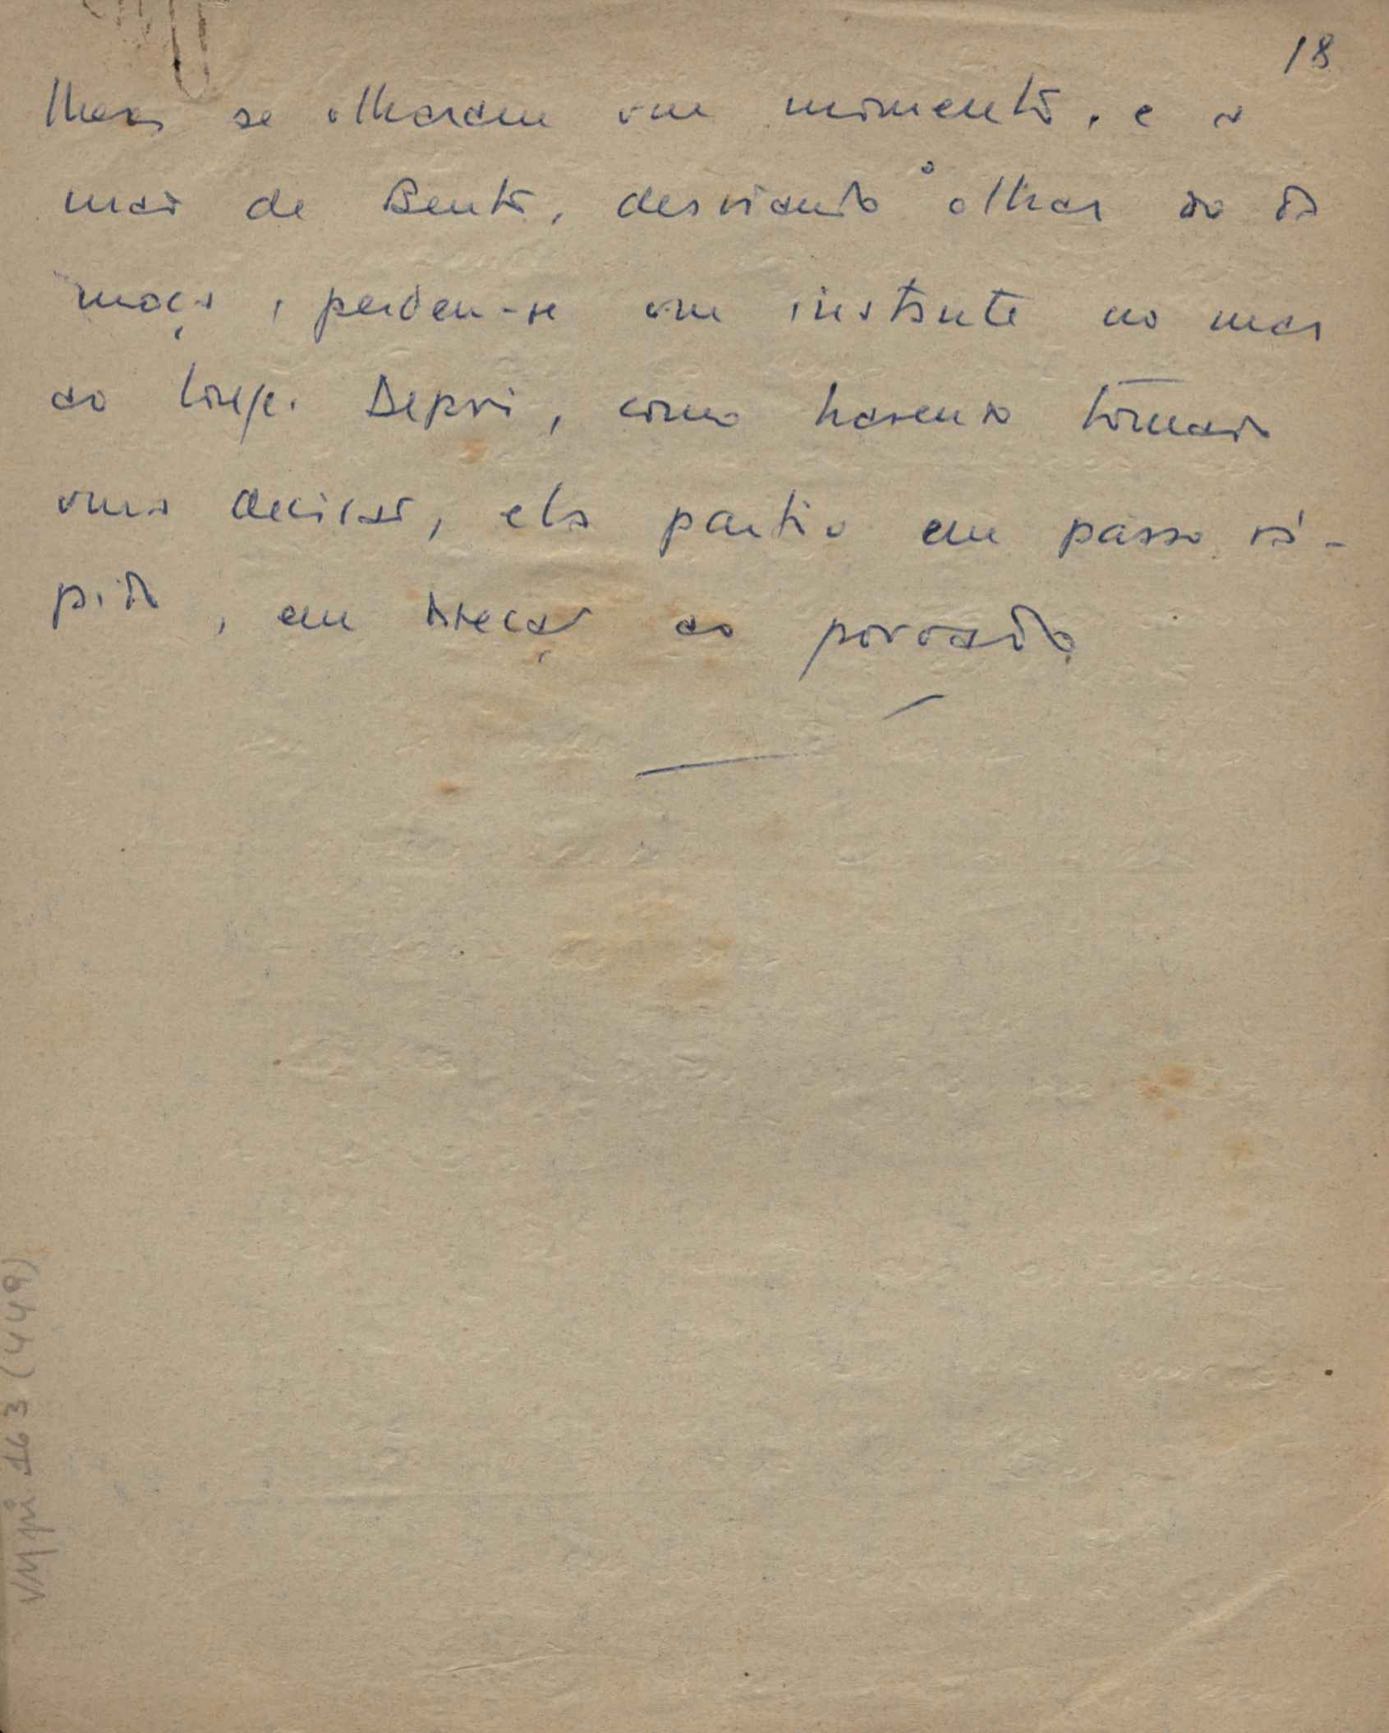 18
lheres se olharam um momento, e a
mãe de Bento, desviando o olhar do da
moça, perdeu-se um instante no mar
ao longe. Depois, como havendo tomado
uma decisão, ela partiu em passo rá-
pido, em direção ao povoado.
VMpi 163 (449)